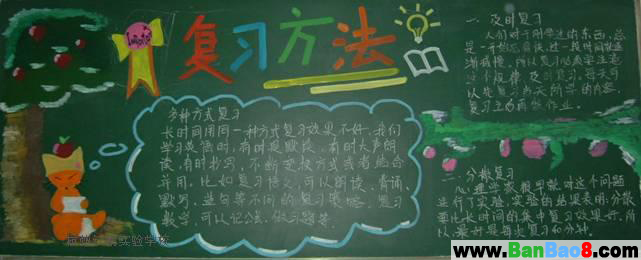 复习方法
一、及时复习
人们对于刚学过的东西,总
是一开始忘得快,过一段时间就逐
渐减慢。所以复习必须学生遵
这个规律,及时复习。每天可
以先复习当天所学的内容,
复习之后再做作业。
多种方式复习
长时间用同一种方式复习效果不好。我们
学习英语时,有时是默读、有时大声朗
读、有时抄写,不断变换方式或者结合
并用。比如复习语文,可以朗读、背诵、
默写、造句等不同的复习策略。复习
数学,可以记公式、做习题等。
二、分散复习
心理学家很早就对这个问题
进行了实验。实验的结果表明:分散
要比长时间的集中复习效果好。所
以最好是每次复习40分钟。
实验学校
www.BanBao8.com